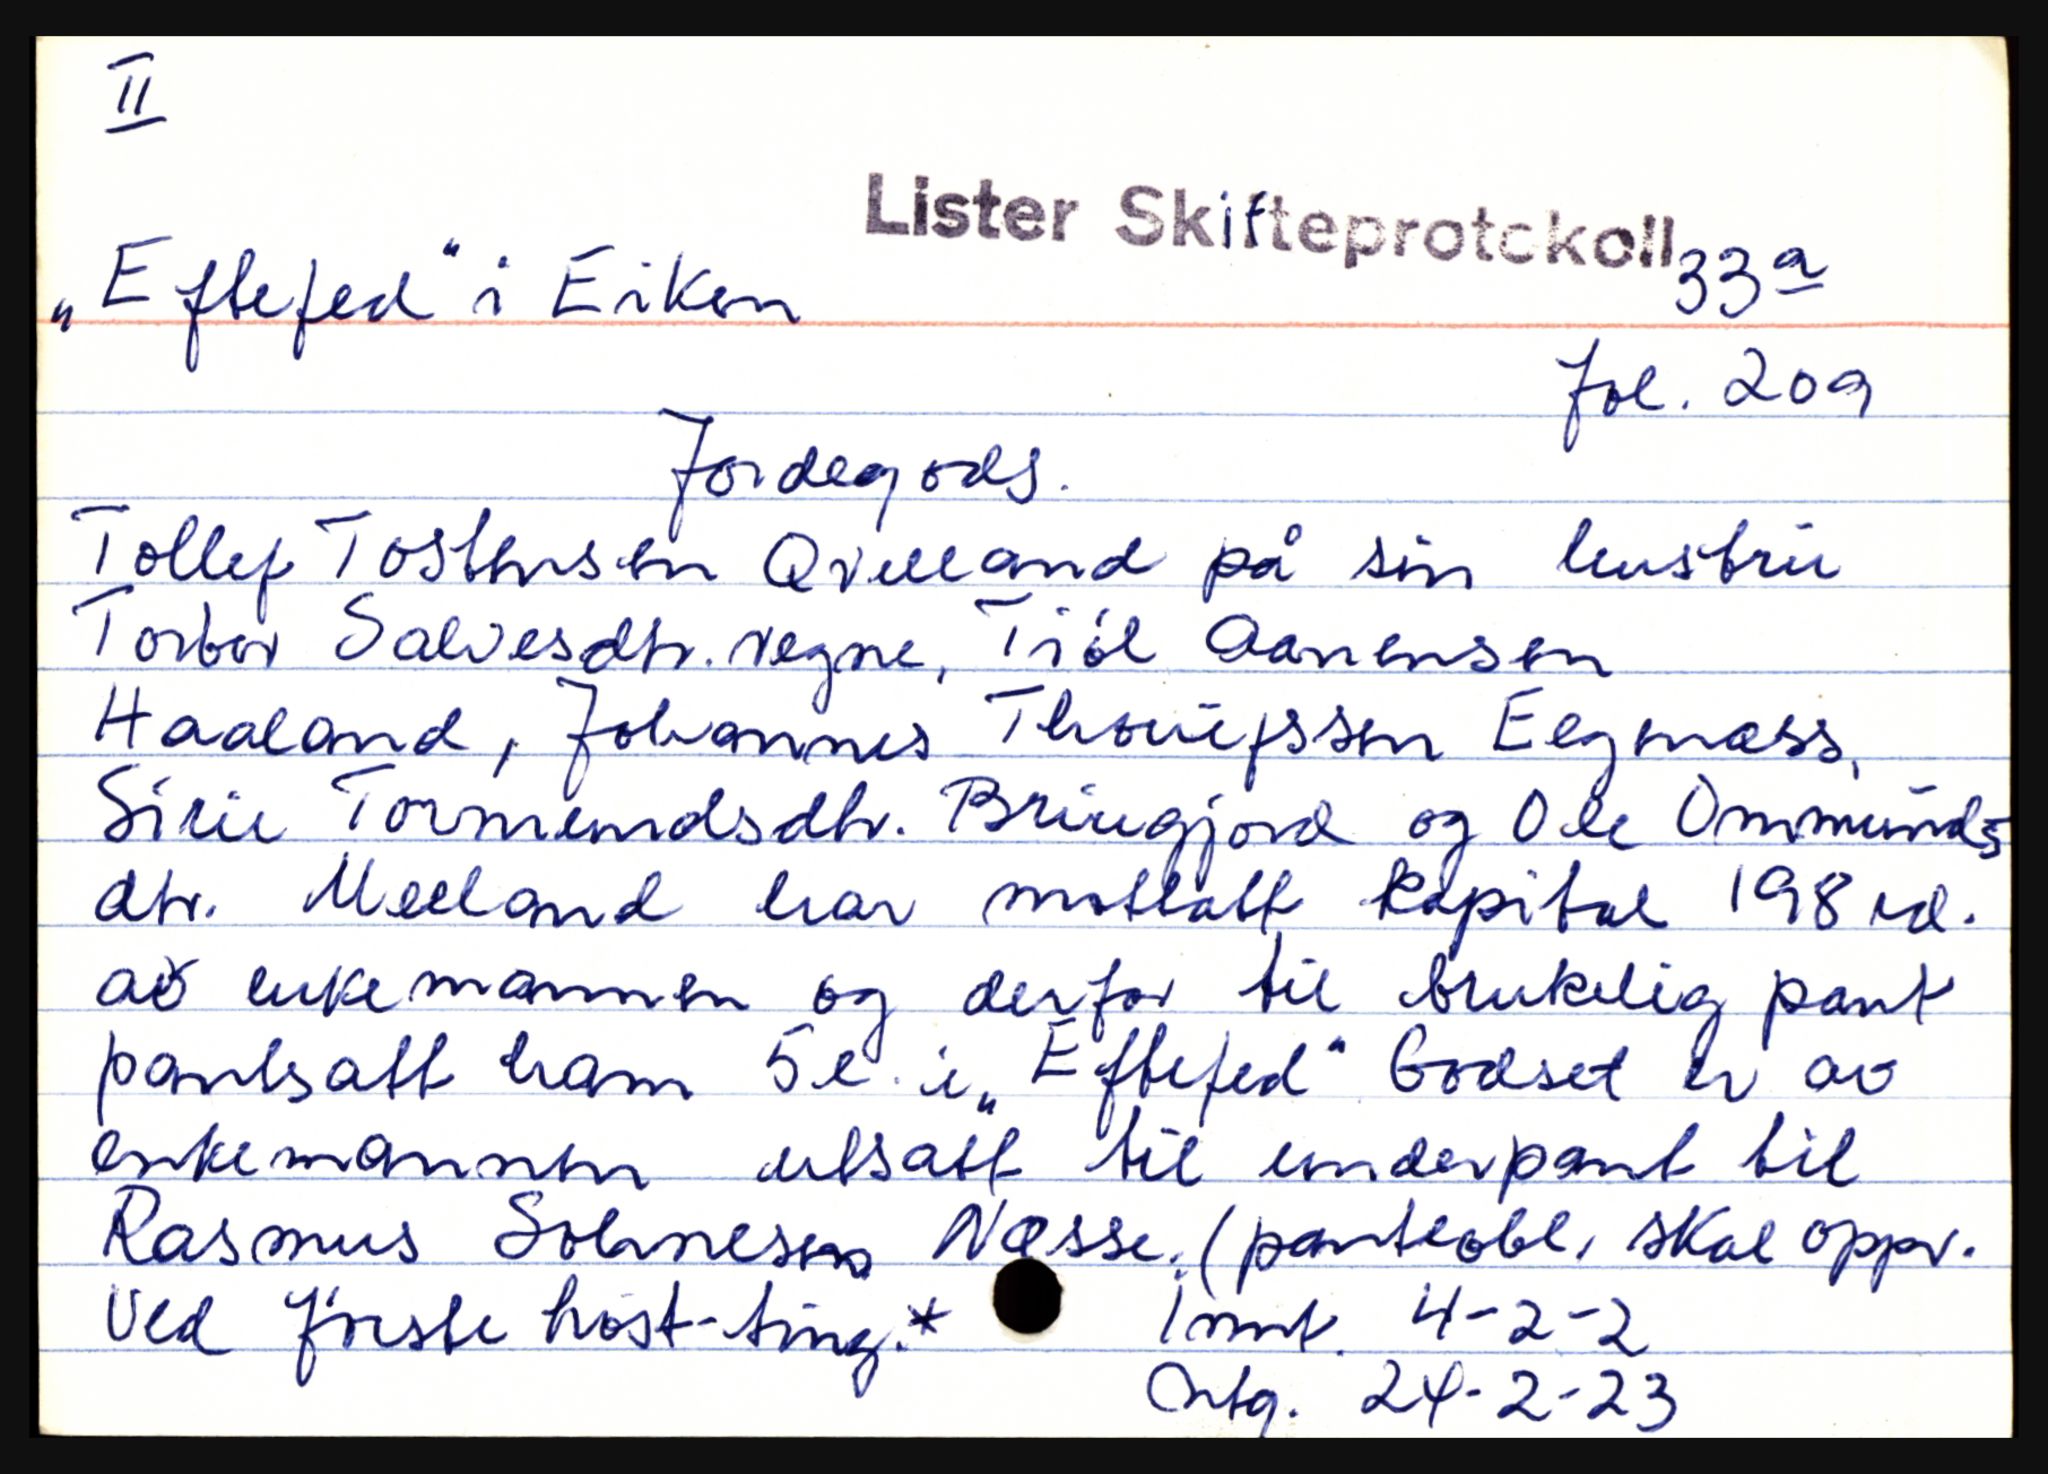 II
Lister Skifteprotokoll 33a
„Eftefed" i Eiken
fol. 209
Jordegods.
Tollef Tostensen Qvelland på sin hustru
Torbor Salvesdtr. vegne, Tiöl Aanensen
Haaland, Johannes Thorüfssen Eegenæss,
Sirie Tormundsdtr. Bringjord og Ole Ommünds
dtr. Meeland har mottatt kapital 198 rd.
av enkemannen og derfor til brukelig pant
pantsatt ham 5 e. i „Eftefed" Godset er av
enkemannen utsatt til underpant til
Rasmus Solvnesen Næsse. (panteobl. skal oppr.
ved förste höst-ting.* Innt. 4-2-2
Utg. 24-2-23